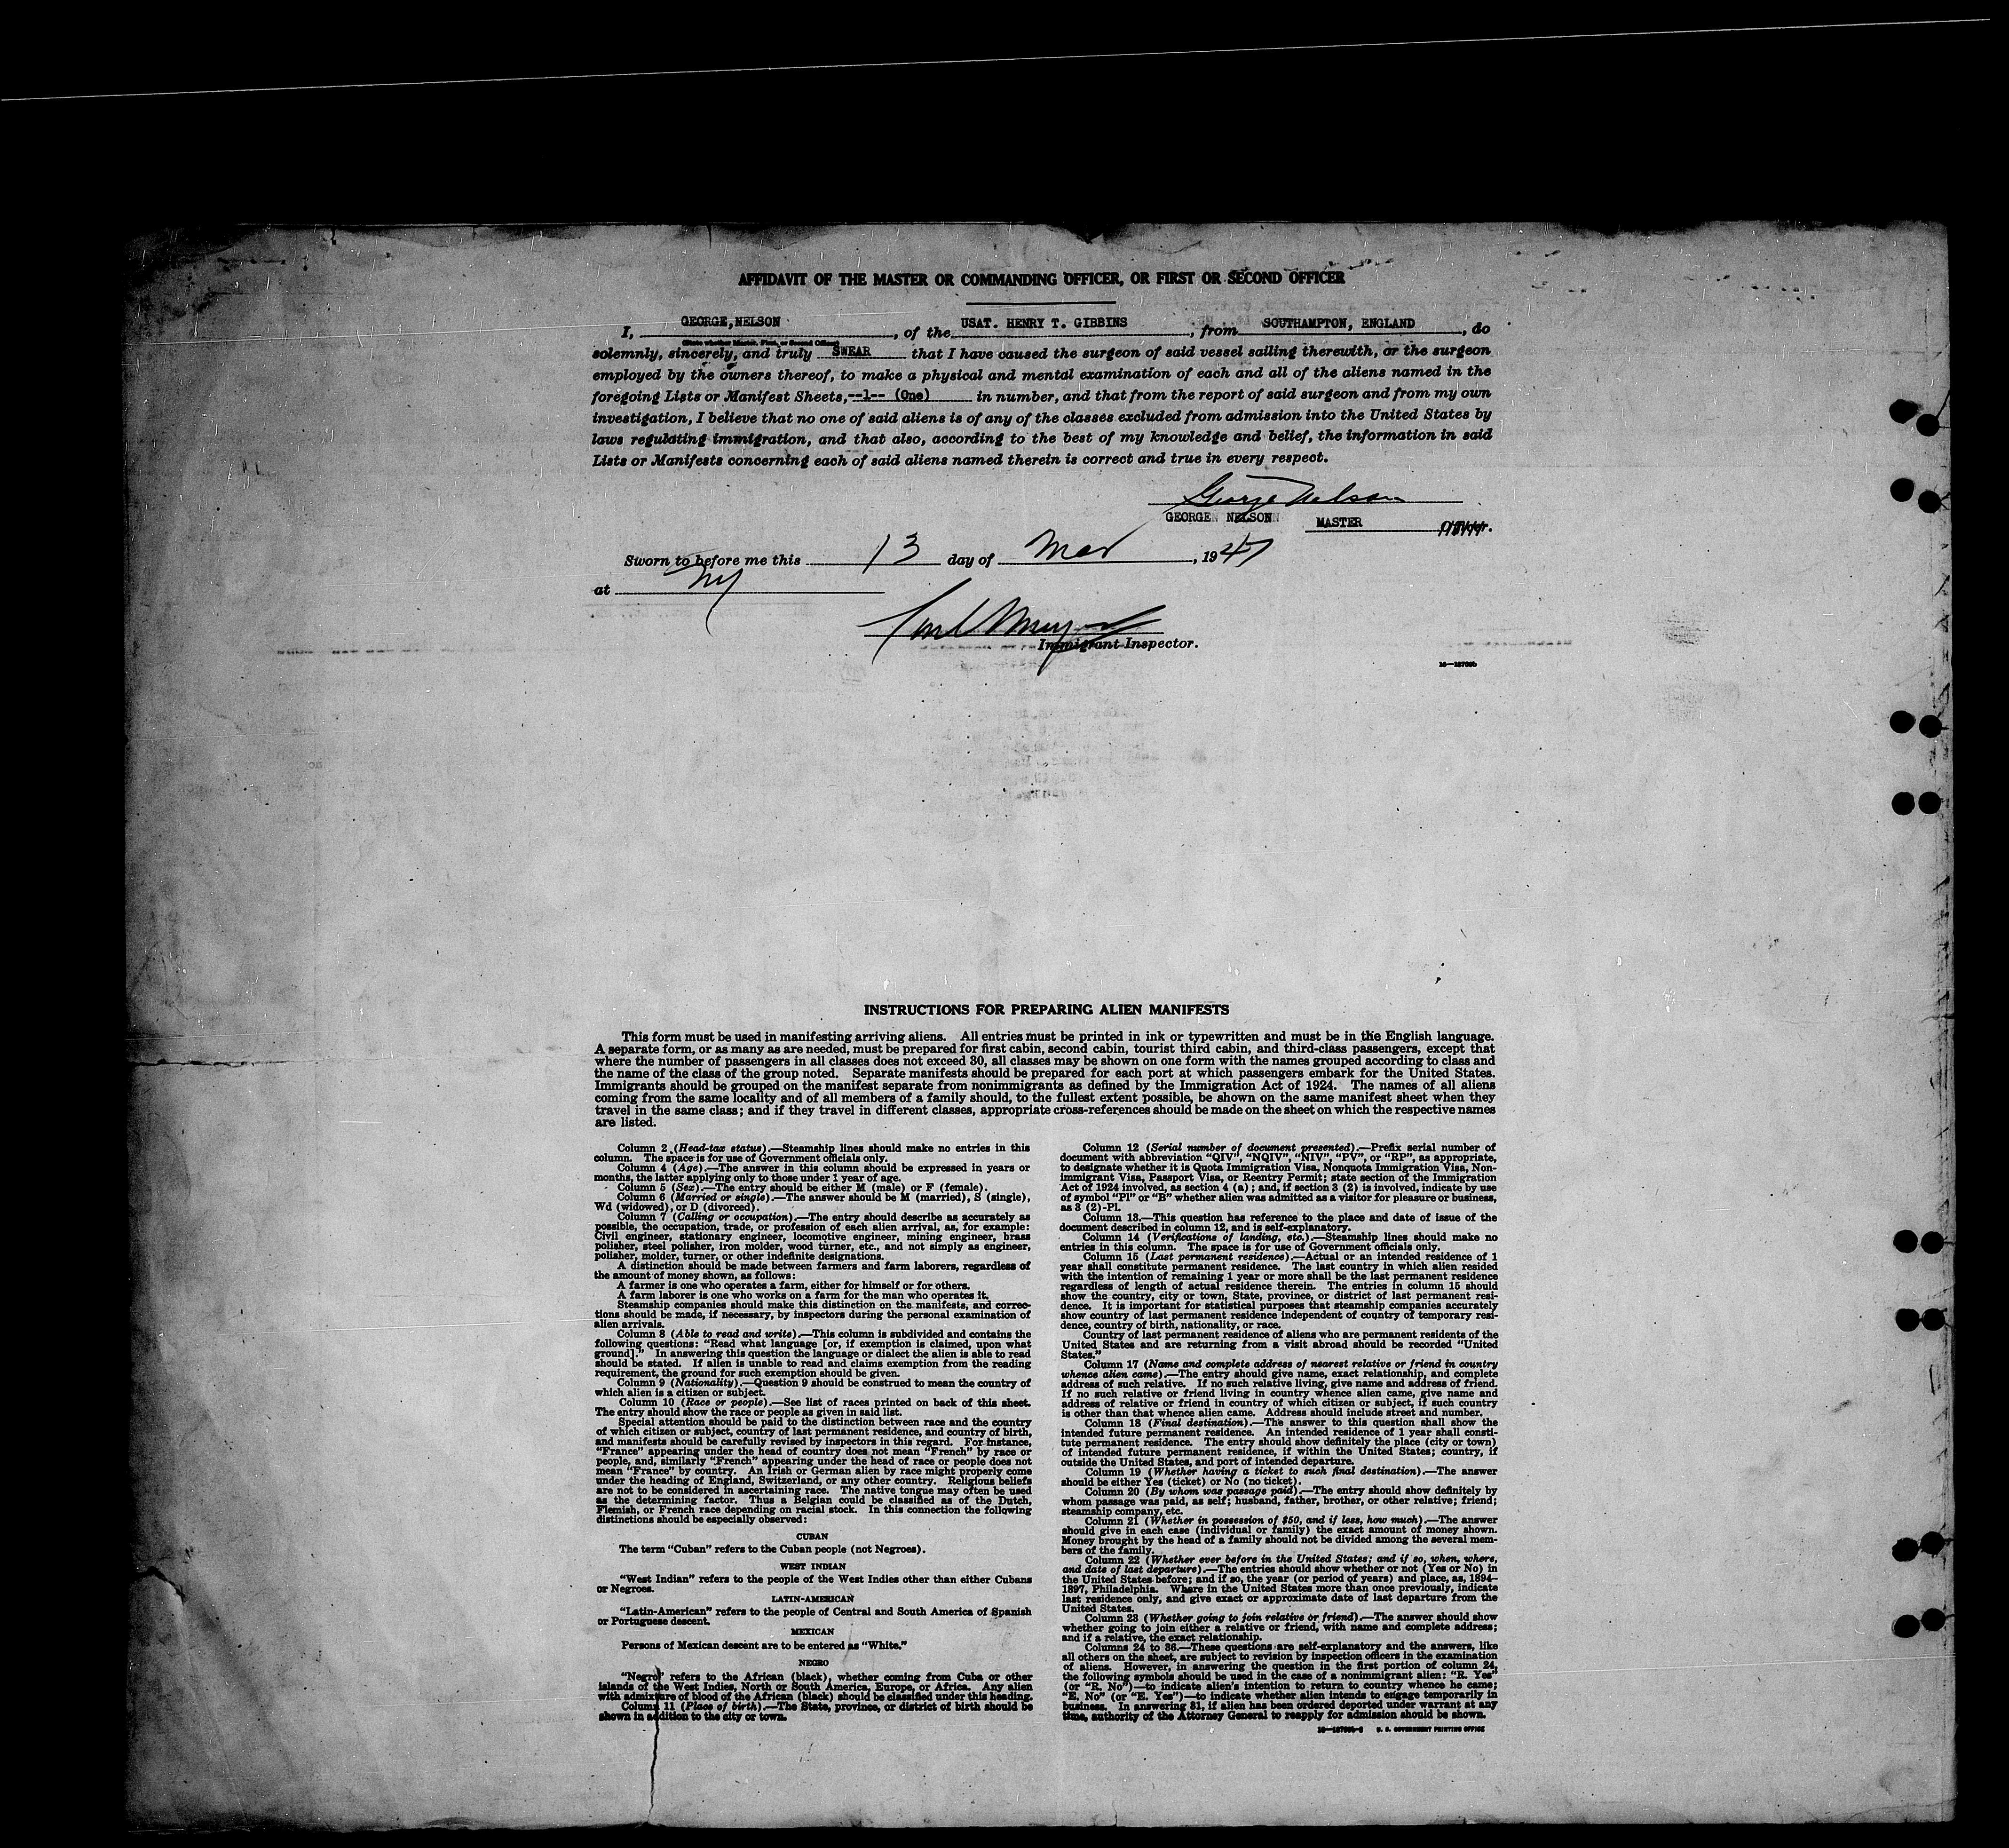 AFFIDAVIT OF THE MASTER OR COMMANDING OFFICER, OR FIRST OR SECOND OFFICER
I, GEORGE, NELSON, of the USAT. HENRY T. GIBBINS, from SOUTHAMPTON, ENGLAND, do
(State whether Master, First, or Second Officer)
solemnly, sincerely, and truly SWEAR that I have caused the surgeon of said vessel sailing therewith, or the surgeon
employed by the owners thereof, to make a physical and mental examination of each and all of the aliens named in the
foregoing Lists or Manifest Sheets, --1-- (One) in number, and that from the report of said surgeon and from my own
investigation, I believe that no one of said aliens is of any of the classes excluded from admission into the United States by
laws regulating immigration, and that also, according to the best of my knowledge and belief, the information in said
Lists or Manifests concerning each of said aliens named therein is correct and true in every respect.
George Nelson
GEORGE NELSON MASTER Officer.
Sworn to before me this 13 day of Mar, 1947
at NY
Immigrant Inspector.
INSTRUCTIONS FOR PREPARING ALIEN MANIFESTS
This form must be used in manifesting arriving aliens. All entries must be printed in ink or typewritten and must be in the English language.
A separate form, or as many as are needed, must be prepared for first cabin, second cabin, tourist third cabin, and third-class passengers, except that
where the number of passengers in all classes does not exceed 30, all classes may be shown on one form with the names grouped according to class and
the name of the class of the group noted. Separate manifests should be prepared for each port at which passengers embark for the United States.
Immigrants should be grouped on the manifest separate from nonimmigrants as defined by the Immigration Act of 1924. The names of all aliens
coming from the same locality and of all members of a family should, to the fullest extent possible, be shown on the same manifest sheet when they
travel in the same class; and if they travel in different classes, appropriate cross-references should be made on the sheet on which the respective names
are listed.
Column 2 (Head-tax status).—Steamship lines should make no entries in this
column. The space is for use of Government officials only.
Column 4 (Age).—The answer in this column should be expressed in years or
months, the latter applying only to those under 1 year of age.
Column 5 (Sex).—The entry should be either M (male) or F (female).
Column 6 (Married or single).—The answer should be M (married), S (single),
Wd (widowed), or D (divorced).
Column 7 (Calling or occupation).—The entry should describe as accurately as
possible, the occupation, trade, or profession of each alien arrival, as, for example:
Civil engineer, stationary engineer, locomotive engineer, mining engineer, brass
polisher, steel polisher, iron molder, wood turner, etc., and not simply as engineer,
polisher, molder, turner, or other indefinite designations.
A distinction should be made between farmers and farm laborers, regardless of
the amount of money shown, as follows:
A farmer is one who operates a farm, either for himself or for others.
A farm laborer is one who works on a farm for the man who operates it.
Steamship companies should make this distinction on the manifests, and correc-
tions should be made, if necessary, by inspectors during the personal examination of
alien arrivals.
Column 8 (Able to read and write).—This column is subdivided and contains the
following questions: "Read what language [or, if exemption is claimed, upon what
ground]." In answering this question the language or dialect the alien is able to read
should be stated. If alien is unable to read and claims exemption from the reading
requirement, the ground for such exemption should be given.
Column 9 (Nationality).—Question 9 should be construed to mean the country of
which alien is a citizen or subject.
Column 10 (Race or people).—See list of races printed on back of this sheet.
The entry should show the race or people as given in said list.
Special attention should be paid to the distinction between race and the country
of which citizen or subject, country of last permanent residence, and country of birth,
and manifests should be carefully revised by inspectors in this regard. For instance,
"France" appearing under the head of country does not mean "French" by race or
people, and, similarly "French" appearing under the head of race or people does not
mean "France" by country. An Irish or German alien by race might properly come
under the heading of England, Switzerland, or any other country. Religious beliefs
are not to be considered in ascertaining race. The native tongue may often be used
as the determining factor. Thus a Belgian could be classified as of the Dutch,
Flemish, or French race depending on racial stock. In this connection the following
distinctions should be especially observed:
CUBAN
The term "Cuban" refers to the Cuban people (not Negroes).
WEST INDIAN
"West Indian" refers to the people of the West Indies other than either Cubans
or Negroes.
LATIN-AMERICAN
"Latin-American" refers to the people of Central and South America of Spanish
or Portuguese descent.
MEXICAN
Persons of Mexican descent are to be entered as "White."
NEGRO
"Negro" refers to the African (black), whether coming from Cuba or other
islands of the West Indies, North or South America, Europe, or Africa. Any alien
with admixture of blood of the African (black) should be classified under this heading.
Column 11 (Place of birth).—The State, province, or district of birth should be
shown in addition to the city or town.
Column 12 (Serial number of document presented).—Prefix serial number of
document with abbreviation "QIV", "NQIV", "NIV", "PV", or "RP", as appropriate,
to designate whether it is Quota Immigration Visa, Nonquota Immigration Visa, Non-
immigrant Visa, Passport Visa, or Reentry Permit; state section of the Immigration
Act of 1924 involved, as section 4 (a); and, if section 3 (2) is involved, indicate by use
of symbol "Pl" or "B" whether alien was admitted as a visitor for pleasure or business,
as 3 (2)-Pl.
Column 13.—This question has reference to the place and date of issue of the
document described in column 12, and is self-explanatory.
Column 14 (Verifications of landing, etc.).—Steamship lines should make no
entries in this column. The space is for use of Government officials only.
Column 15 (Last permanent residence).—Actual or an intended residence of 1
year shall constitute permanent residence. The last country in which alien resided
with the intention of remaining 1 year or more shall be the last permanent residence
regardless of length of actual residence therein. The entries in column 15 should
show the country, city or town, State, province, or district of last permanent resi-
dence. It is important for statistical purposes that steamship companies accurately
show country of last permanent residence independent of country of temporary resi-
dence, country of birth, nationality, or race.
Country of last permanent residence of aliens who are permanent residents of the
United States and are returning from a visit abroad should be recorded "United
States."
Column 17 (Name and complete address of nearest relative or friend in country
whence alien came).—The entry should give name, exact relationship, and complete
address of such relative. If no such relative living, give name and address of friend.
If no such relative or friend living in country whence alien came, give name and
address of relative or friend in country of which citizen or subject, if such country
is other than that whence alien came. Address should include street and number.
Column 18 (Final destination).—The answer to this question shall show the
intended future permanent residence. An intended residence of 1 year shall consti-
tute permanent residence. The entry should show definitely the place (city or town)
of intended future permanent residence, if within the United States; country, if
outside the United States, and port of intended departure.
Column 19 (Whether having a ticket to such final destination).—The answer
should be either Yes (ticket) or No (no ticket).
Column 20 (By whom was passage paid).—The entry should show definitely by
whom passage was paid, as self; husband, father, brother, or other relative; friend;
steamship company, etc.
Column 21 (Whether in possession of $50, and if less, how much).—The answer
should give in each case (individual or family) the exact amount of money shown.
Money brought by the head of a family should not be divided among the several mem-
bers of the family.
Column 22 (Whether ever before in the United States; and if so, when, where,
and date of last departure).—The entries should show whether or not (Yes or No) in
the United States before; and if so, the year (or period of years) and place, as, 1894-
1897, Philadelphia. Where in the United States more than once previously, indicate
last residence only, and give exact or approximate date of last departure from the
United States.
Column 23 (Whether going to join relative or friend).—The answer should show
whether going to join either a relative or friend, with name and complete address;
and if a relative, the exact relationship.
Columns 24 to 36.—These questions are self-explanatory and the answers, like
all others on the sheet, are subject to revision by inspection officers in the examination
of aliens. However, in answering the question in the first portion of column 24,
the following symbols should be used in the case of a nonimmigrant alien: "R. Yes"
(or "R. No")—to indicate alien's intention to return to country whence he came;
"E. No" (or "E. Yes")—to indicate whether alien intends to engage temporarily in
business. In answering 31, if alien has been ordered deported under warrant at any
time, authority of the Attorney General to reapply for admission should be shown.
U. S. GOVERNMENT PRINTING OFFICE